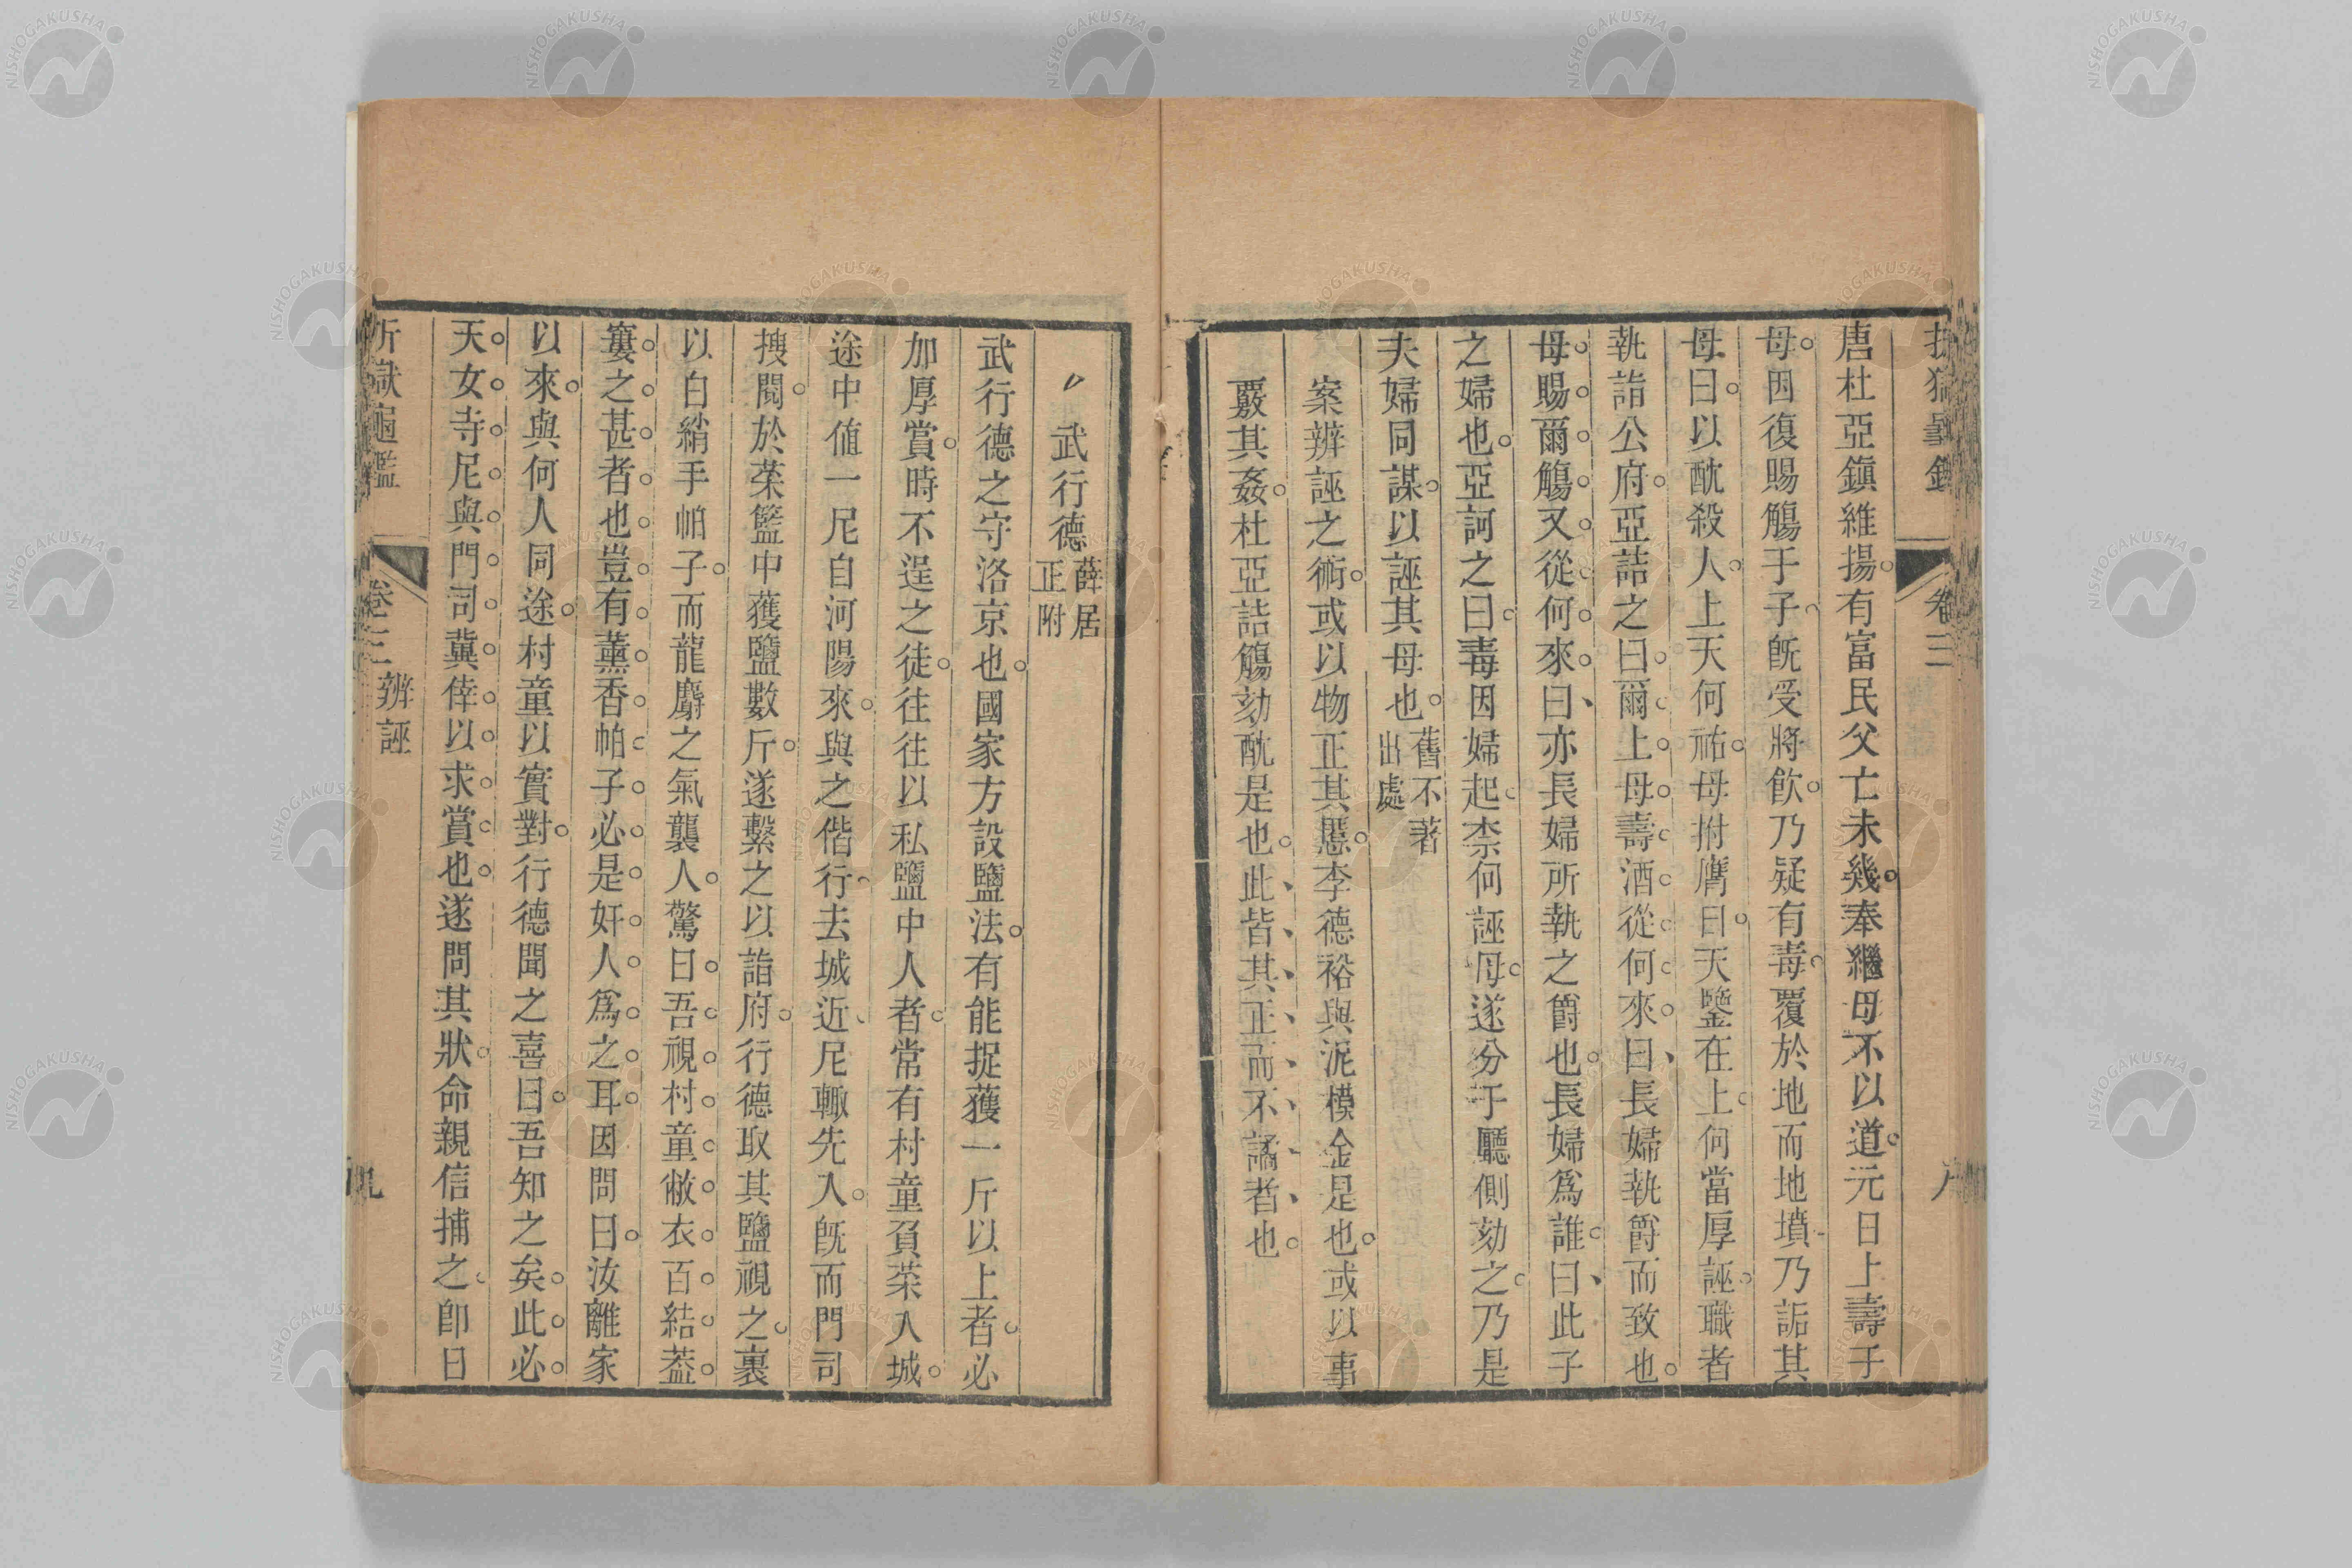 唐杜亞鎮維揚。有富民父亡未幾。奉繼母不以道。元日上壽于
母。因復賜觴于子。旣受將飮。乃疑有毒。覆於地而地墳。乃詬其
母曰。以酖殺人。上天何祐。母拊膺曰。天鑒在上。何當厚誣。職者
執詣公府。亞詰之曰。爾上母壽。酒從何來。曰、長婦執爵而致也。
母賜爾觴。又從何來。曰、亦長婦所執之爵也。長婦爲誰。曰、此子
之婦也。亞訶之曰。毒因婦起。柰何誣母。遂分于廳側劾之。乃是
夫婦同謀。以誣其母也。舊不著出處
案辨誣之術。或以物正其慝。李德裕與泥模金是也。或以事
覈其姦。杜亞詰觴劾酖是也。此、皆、其、正、而、不、譎、者、也。
武行德 薛居正附
武行德之守洛京也。國家方設鹽法。有能捉獲一斤以上者。必
加厚賞。時不逞之徒。往往以私鹽中人者。常有村童負菜入城。
途中値一尼自河陽來。與之偕行。去城近。尼輒先入。旣而門司
搜閱。於菜籃中獲鹽數斤。遂繫之以詣府。行德取其鹽視之。裹
以白綃手帕子。而龍麝之氣襲人。驚曰。吾視村童敝衣百結。葢
窶之甚者也。豈有薰香帕子。必是奸人爲之耳。因問曰。汝離家
以來。與何人同途。村童以實對。行德聞之喜曰。吾知之矣。此必
天女寺尼與門司冀倖以求賞也。遂問其狀。命親信捕之。卽日
卷三 辨誣